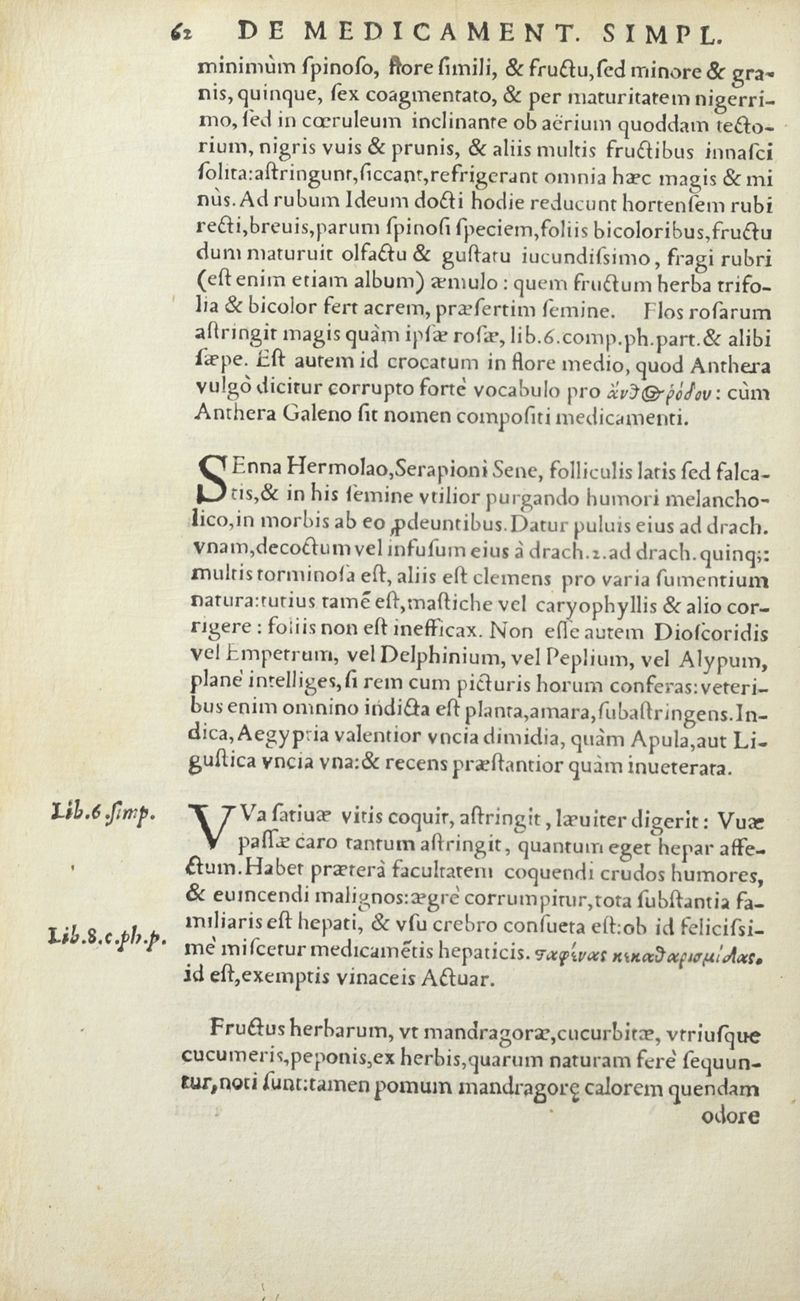 62 DE MEDICAMENT. SIMPL.
minimùm ſpinoſo, flore ſimili, & fructu, ſed minore & gra-
nis, quinque, ſex coagmentato, & per maturitatem nigerri-
mo, ſed in cœruleum inclinante ob aërium quoddam tecto-
rium, nigris vuis & prunis, & aliis multis fructibus innaſci
ſolita: aſtringunt, ſiccant, refrigerant omnia hæc magis & mi
nùs. Ad rubum Ideum docti hodie reducunt hortenſem rubi
recti, breuis, parum ſpinoſi ſpeciem, foliis bicoloribus, fructu
dum maturuit olfactu & guſtatu iucundiſsimo, fragi rubri
(eſt enim etiam album) æmulo : quem fructum herba trifo-
lia & bicolor fert acrem, præſertim ſemine. Flos roſarum
aſtringit magis quàm ipſæ roſæ, lib.6.comp.ph.part. & alibi
ſæpe. Eſt autem id crocatum in flore medio, quod Anthera
vulgò dicitur corrupto fortè vocabulo pro ἄνθος ῥόδου: cùm
Anthera Galeno ſit nomen compoſiti medicamenti.
SEnna Hermolao, Serapioni Sene, folliculis latis ſed falca-
tis, & in his ſemine vtilior purgando humori melancho-
lico, in morbis ab eo ꝓdeuntibus. Datur puluis eius ad drach.
vnam, decoctum vel infuſum eius à drach.2.ad drach.quinq;:
multis torminoſa eſt, aliis eſt clemens pro varia ſumentium
natura: tutius tamē eſt, maſtiche vel caryophyllis & alio cor-
rigere : foliis non eſt inefficax. Non eſſe autem Dioſcoridis
vel Empetrum, vel Delphinium, vel Peplium, vel Alypum,
planè intelliges, ſi rem cum picturis horum conferas: veteri-
bus enim omnino indicta eſt planta, amara, ſubaſtringens. In-
dica, Aegyptia valentior vncia dimidia, quàm Apula, aut Li-
guſtica vncia vna: & recens præſtantior quàm inueterata.
Lib.6.ſimp.
VVa ſatiuæ vitis coquit, aſtringit, læuiter digerit : Vuæ
paſſæ caro tantum aſtringit, quantum eget hepar affe-
ctum. Habet præterà facultatem coquendi crudos humores,
& euincendi malignos: ægrè corrumpitur, tota ſubſtantia fa-
miliaris eſt hepati, & vſu crebro conſueta eſt: ob id feliciſsi-
Lib.8.c.ph.p.
mè miſcetur medicamētis hepaticis. ςαφίνας κικαθαρισμίδας.
id eſt, exemptis vinaceis Actuar.
Fructus herbarum, vt mandragoræ, cucurbitæ, vtriuſque
cucumeris, peponis, ex herbis, quarum naturam ferè ſequun-
tur, noti ſunt: tamen pomum mandragorę calorem quendam
odore